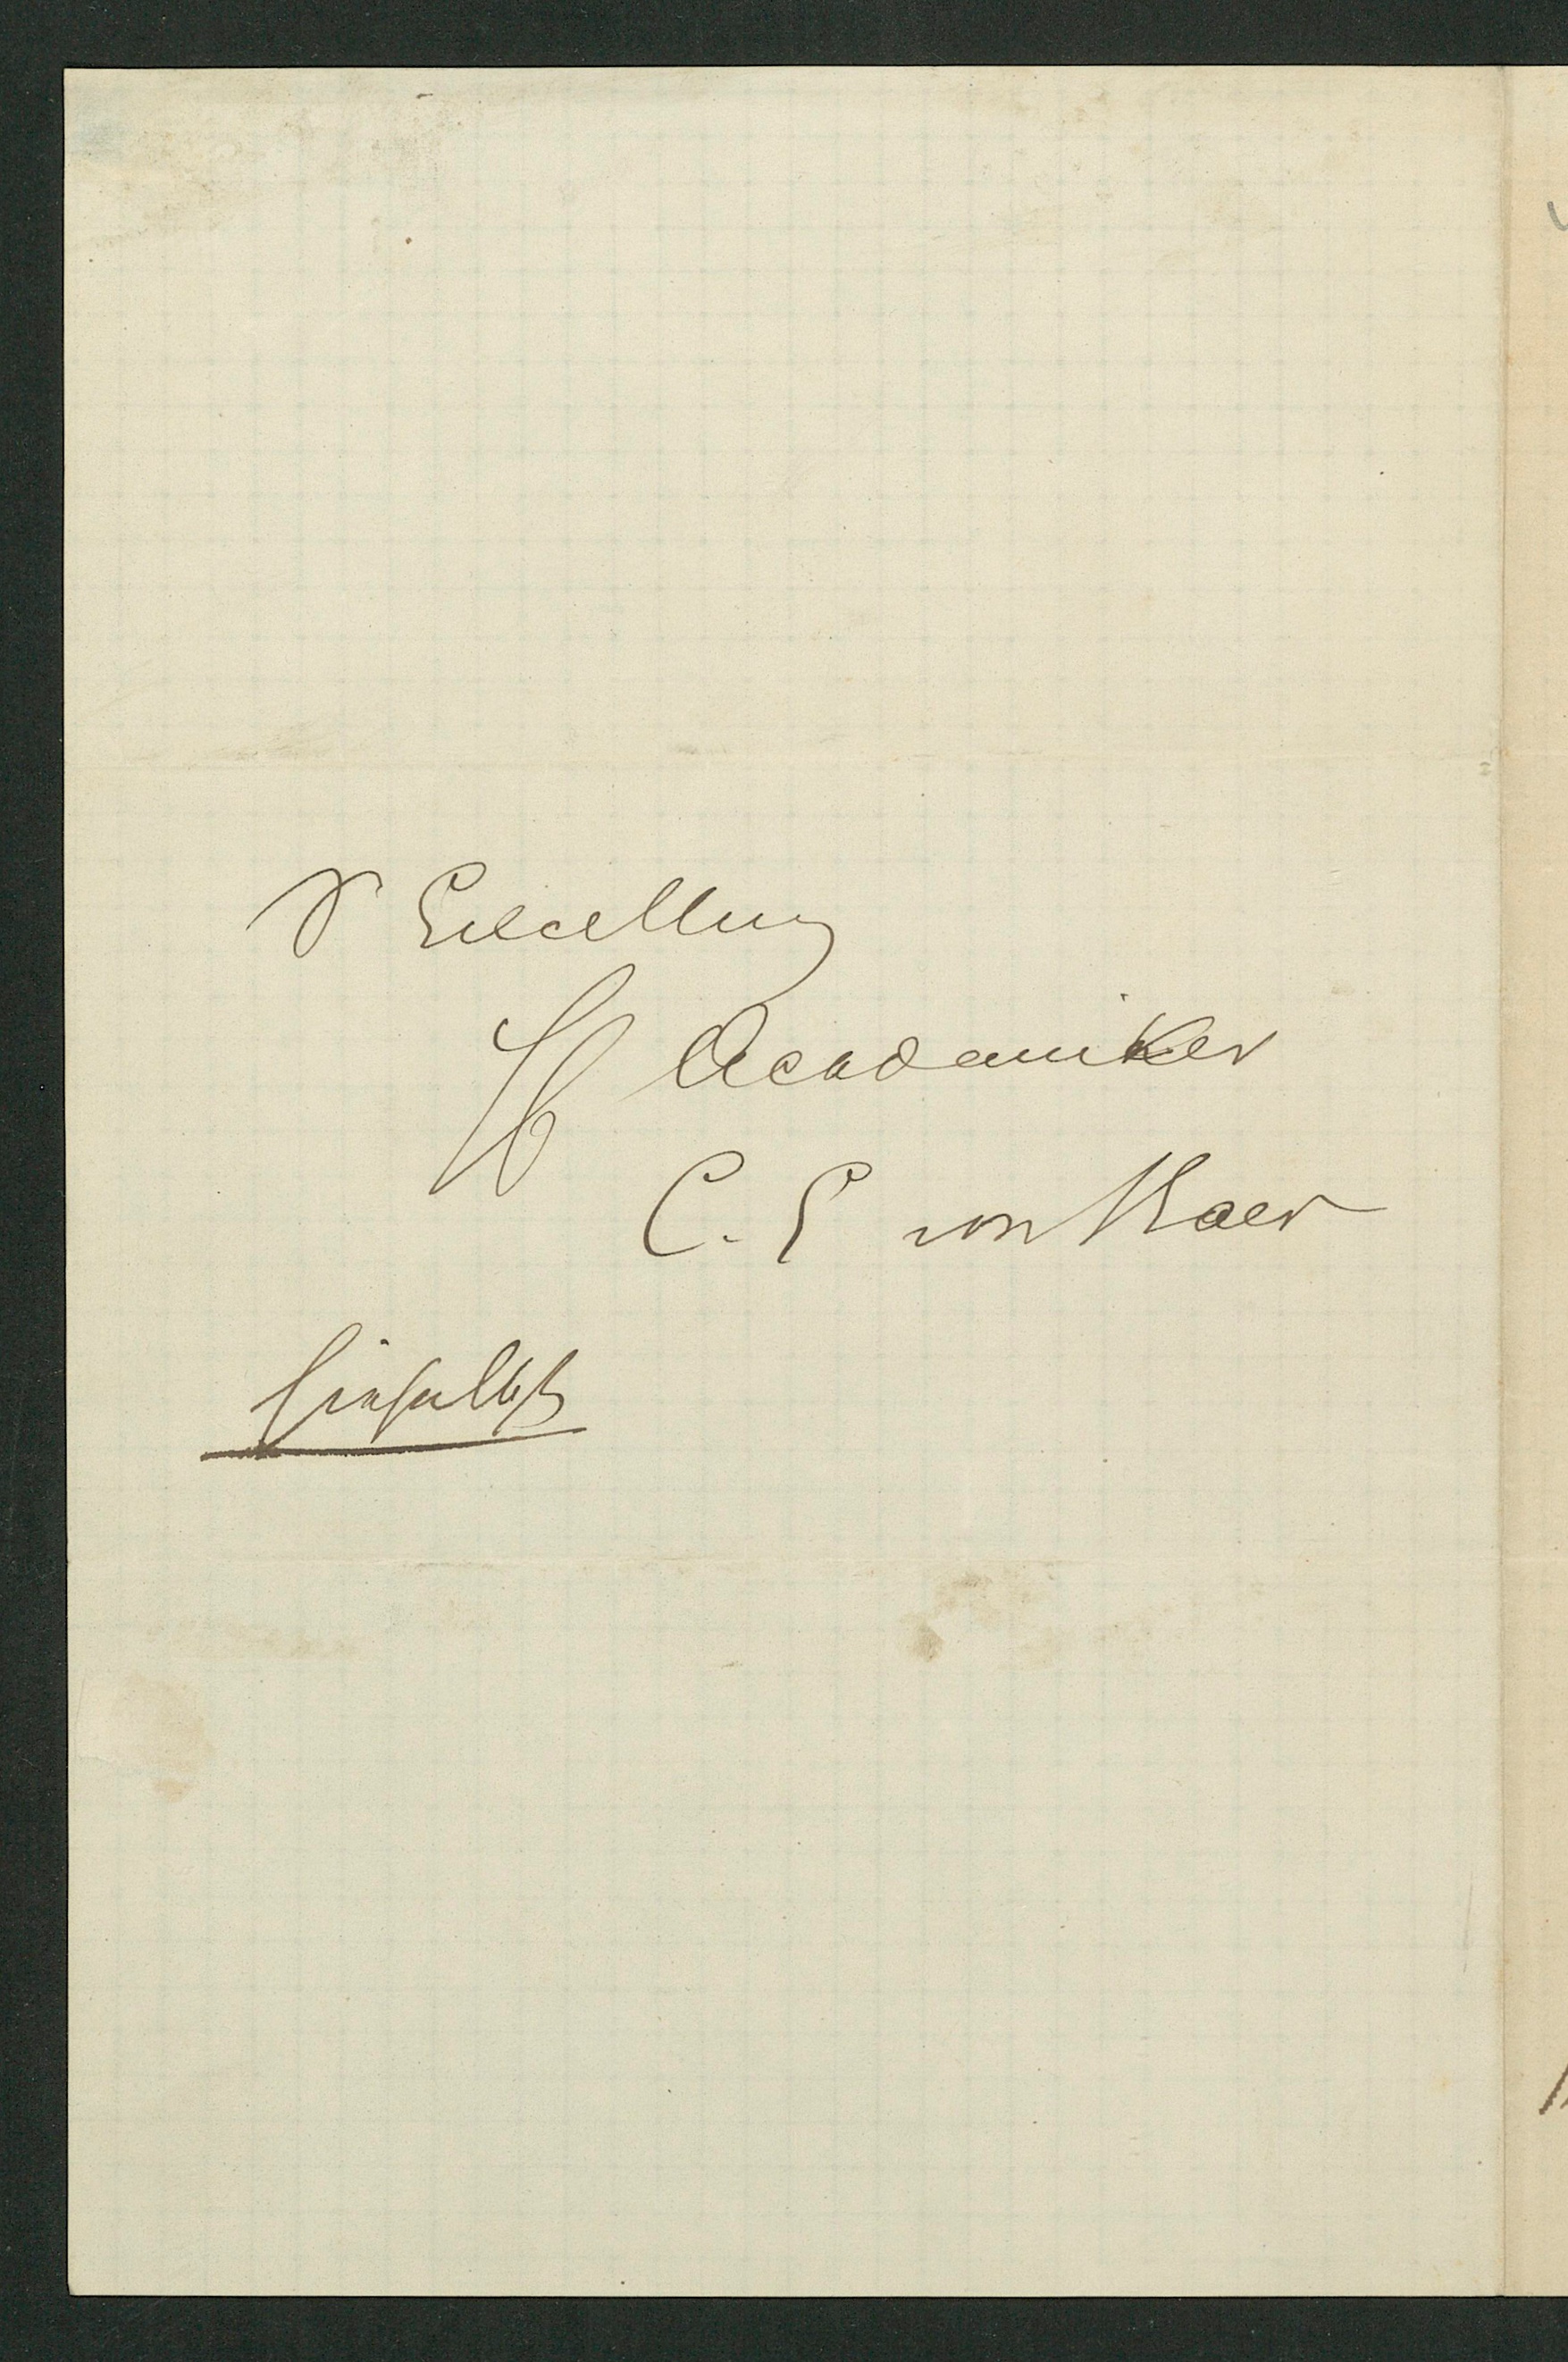 Sr Excellenz
H Academiker
C. E von Baer
hieselbst